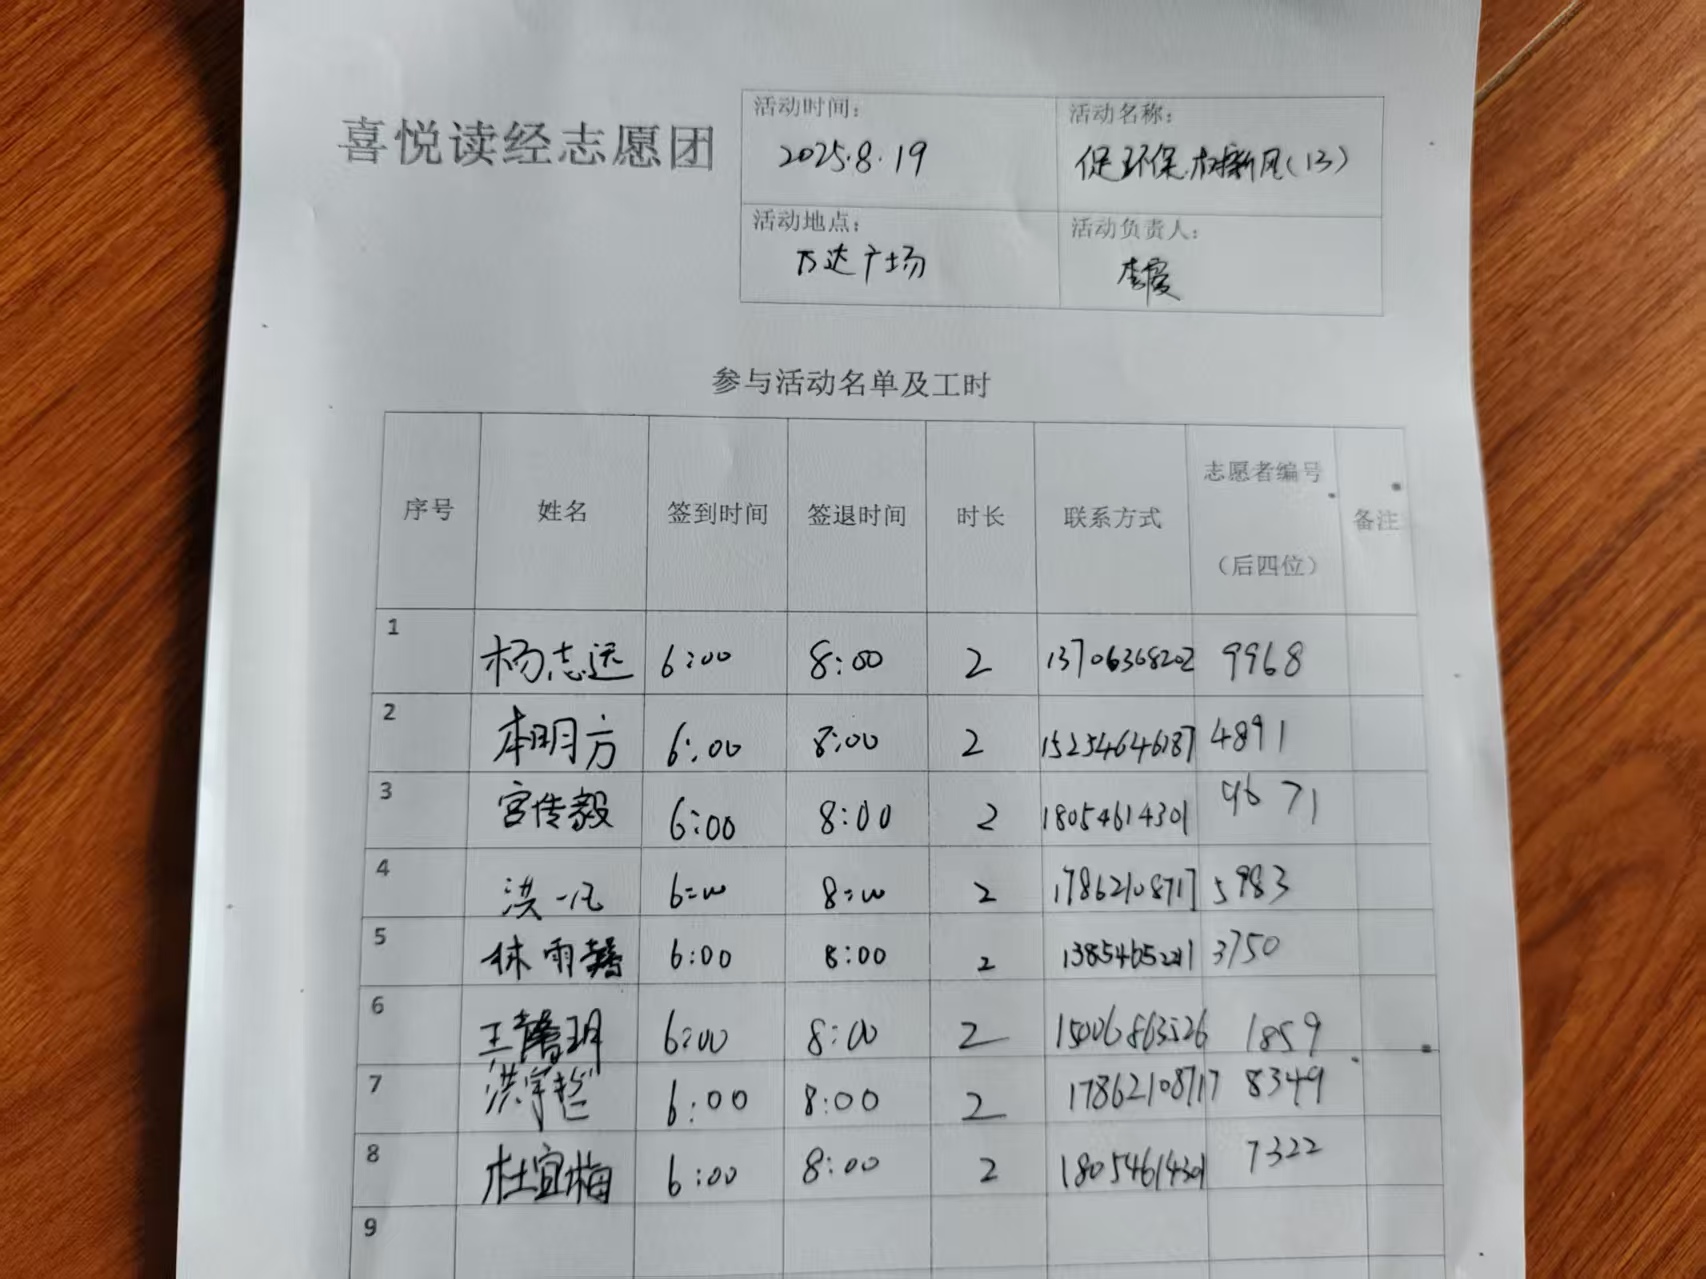 喜悦读经志愿团
活动时间：
2025.8.19
活动名称：
促环保.树新风(13)
活动地点：
万达广场
活动负责人：
李霞
参与活动名单及工时
序号 姓名 签到时间 签退时间 时长 联系方式 志愿者编号（后四位） 备注
1 杨志远 6:00 8:00 2 13706368202 9968
2 明方 6:00 8:00 2 15254646187 4891
3 宫传毅 6:00 8:00 2 18054614301 9671
4 洪一凡 6:00 8:00 2 17862108717 5983
5 林雨馨 6:00 8:00 2 3750
6 王馨玥 6:00 8:00 2 15006863526 1859
7 洪宇 6:00 8:00 2 17862108717 8349
8 杜宜梅 6:00 8:00 2 18054614301 7322
9